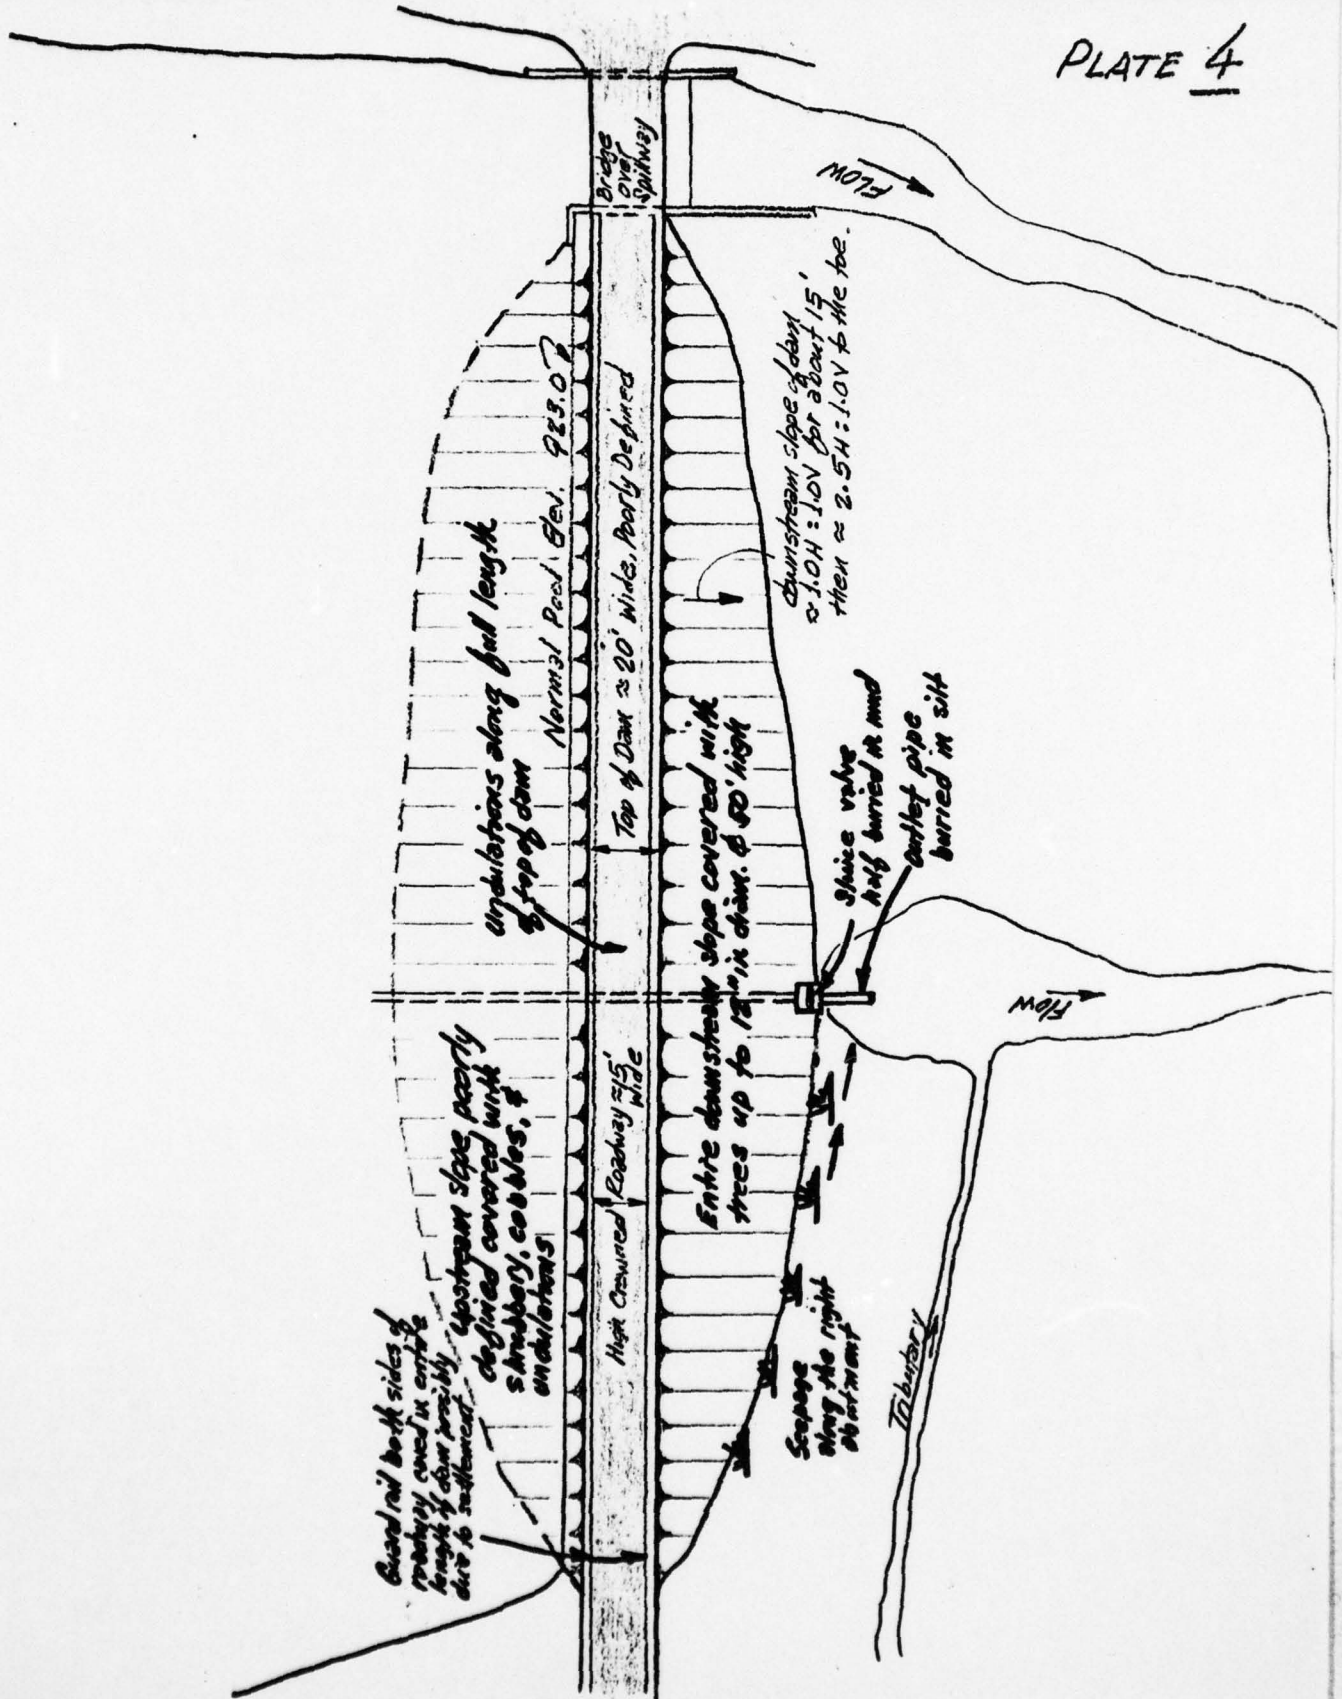 PLATE 4
Bridge
over
Spillway
FLOW
downstream slope of dam
≈ 1.0H : 1.0V for about 15'
then ≈ 2.5H : 1.0V to the toe.
Normal Pool Elev. 923.0?
Top of Dam ≈ 20' Wide, Poorly Defined
Undulations along full length
of top of dam
Entire downstream slope covered with
trees up to 12" in diam. & 50' high
Sluice valve
half buried in mud
outlet pipe
buried in silt
FLOW
Upstream slope poorly
defined covered with
shrubbery, cobbles, &
undulations
High Crowned Roadway ≈ 15'
Wide
Guard rail both sides of
roadway caved in entire
length of dam possibly
due to settlement
Seepage
along the right
abutment
Tributary